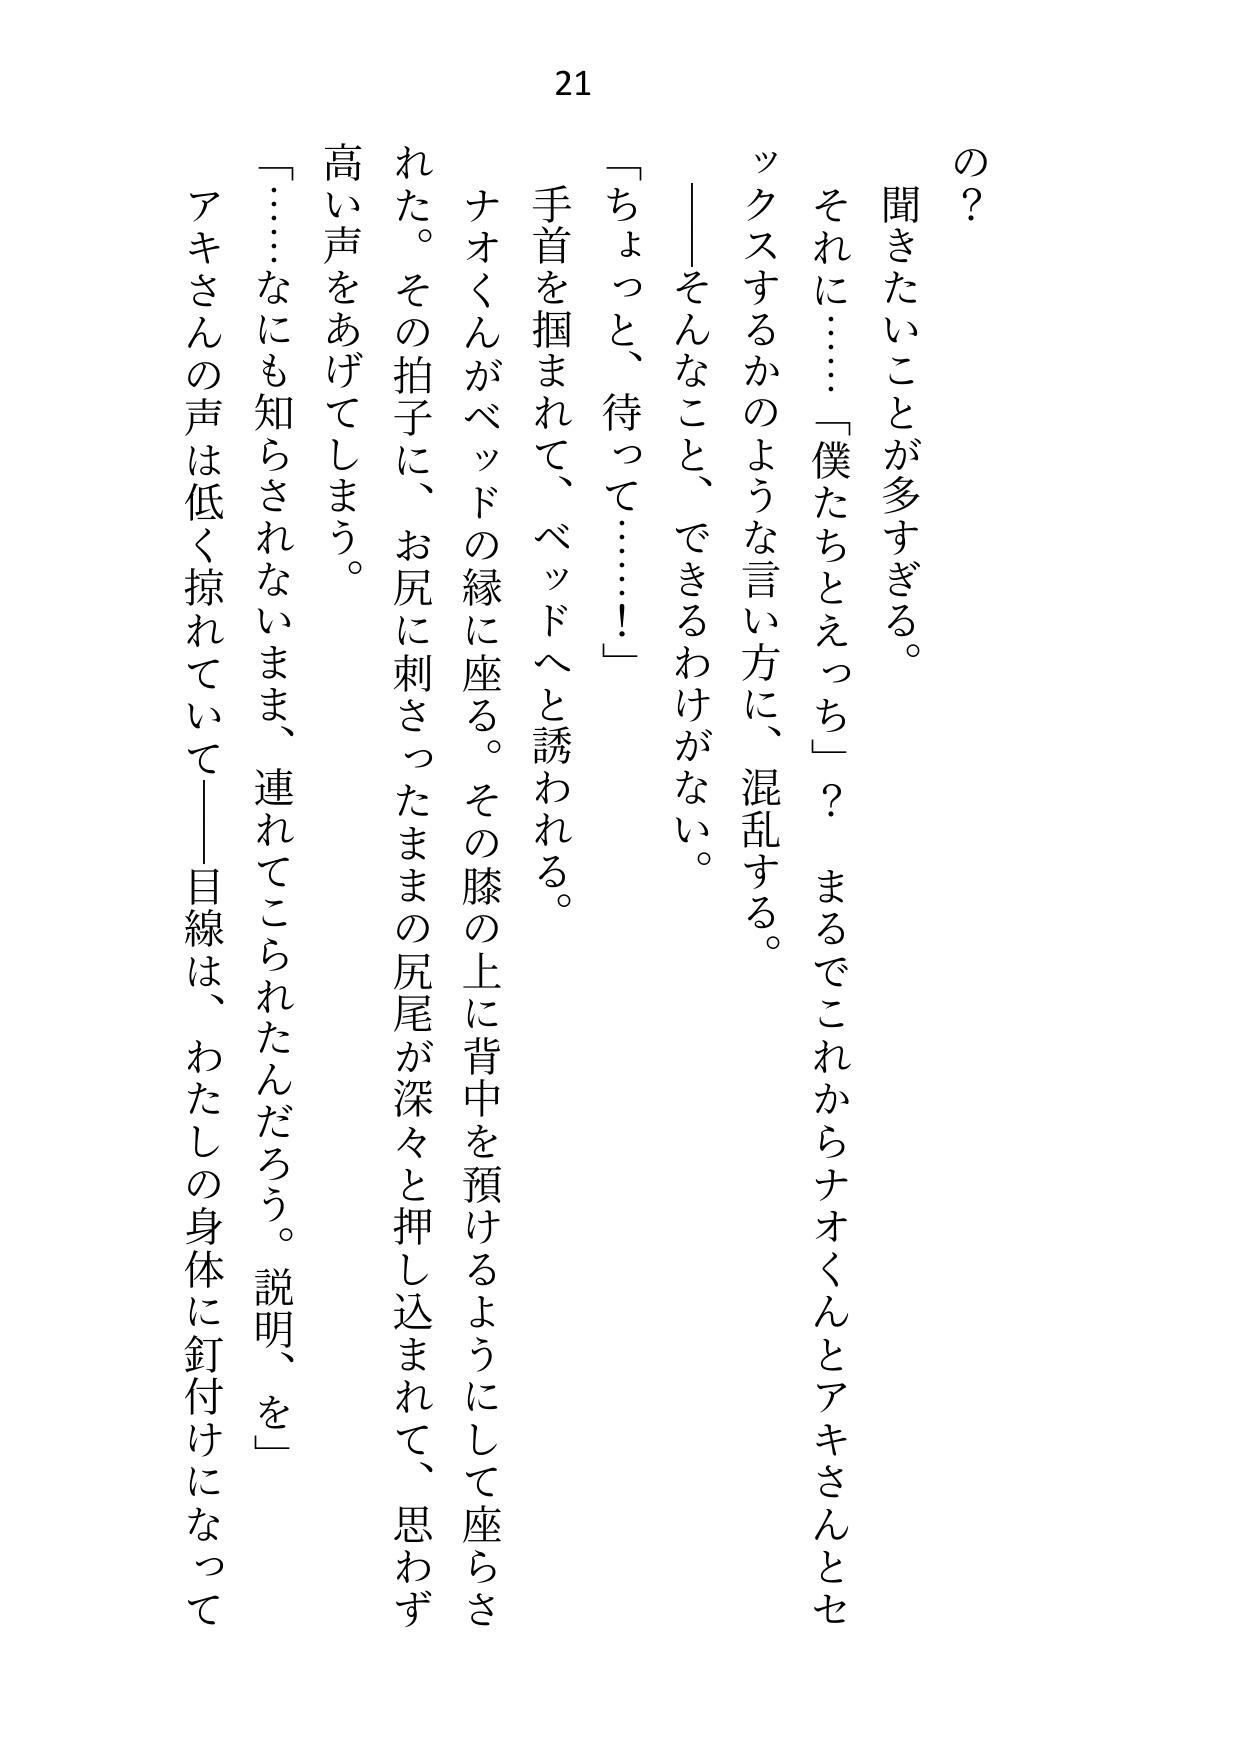 21
の？
聞きたいことが多すぎる。
それに……「僕たちとえっち」？　まるでこれからナオくんとアキさんとセ
ックスするかのような言い方に、混乱する。
――そんなこと、できるわけがない。
「ちょっと、待って……！」
手首を掴まれて、ベッドへと誘われる。
ナオくんがベッドの縁に座る。その膝の上に背中を預けるようにして座らさ
れた。その拍子に、お尻に刺さったままの尻尾が深々と押し込まれて、思わず
高い声をあげてしまう。
「……なにも知らされないまま、連れてこられたんだろう。説明、を」
アキさんの声は低く掠れていて――目線は、わたしの身体に釘付けになって